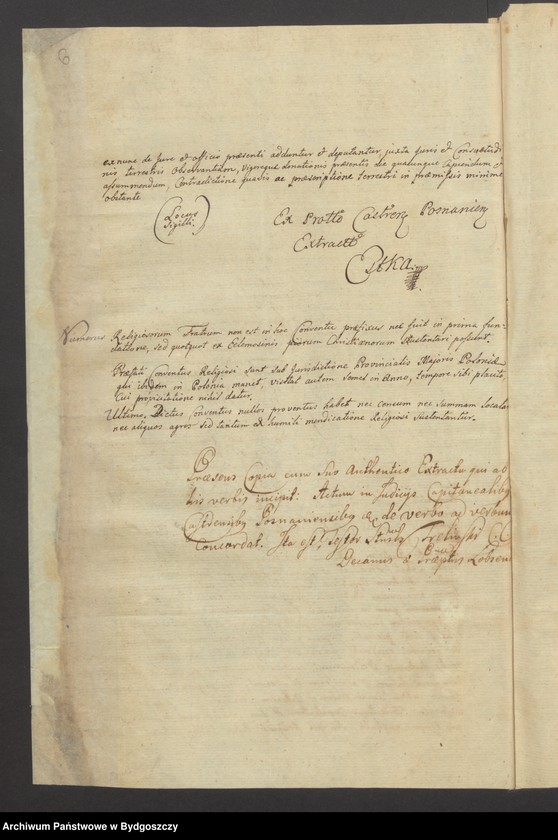 6
ex nunc de Jure et officio præsenti adduntur et deputantur, juxta juris et Consvetudi
nis terrestris observantiam, vigoreque donationis præsentis de qualunque capiendum et
assummendum, Contradictione quavis ac præscriptione terrestri in præmissis minime
obstante
(Locus
Sigilli)
Ex Protto Castren Posnanien
Extract
Numerus Religiosorum Fratrum non est in hoc Conventu præfixus nec fuit in prima fun-
datione, sed quotquot ex Elemosinis piorum Christianorum sustentari possunt.
Præfati Conventus Religiosi sunt sub Jurisdictione Provincialis Majoris Poloniæ
qui ibidem in Polonia manet, visitat autem semel in Anno, tempore sibi placito
Cui pro visitatione nihil datur.
Ultimo, Dictus Conventus nullos proventus habet nec censum nec summam locata
nec aliquos agros sed tantum ex humili mendicatione Religiosi sustentantur.
Præsens Copia cum suo Authentico Extractu quo ab
his verbis incipit: Actum in Judicijs Capitanealibq
Castrensibq Posnaniensibq &c. de verbo ad verbum
Concordat. Ita est.
Decanus &
Archiwum Państwowe w Bydgoszczy